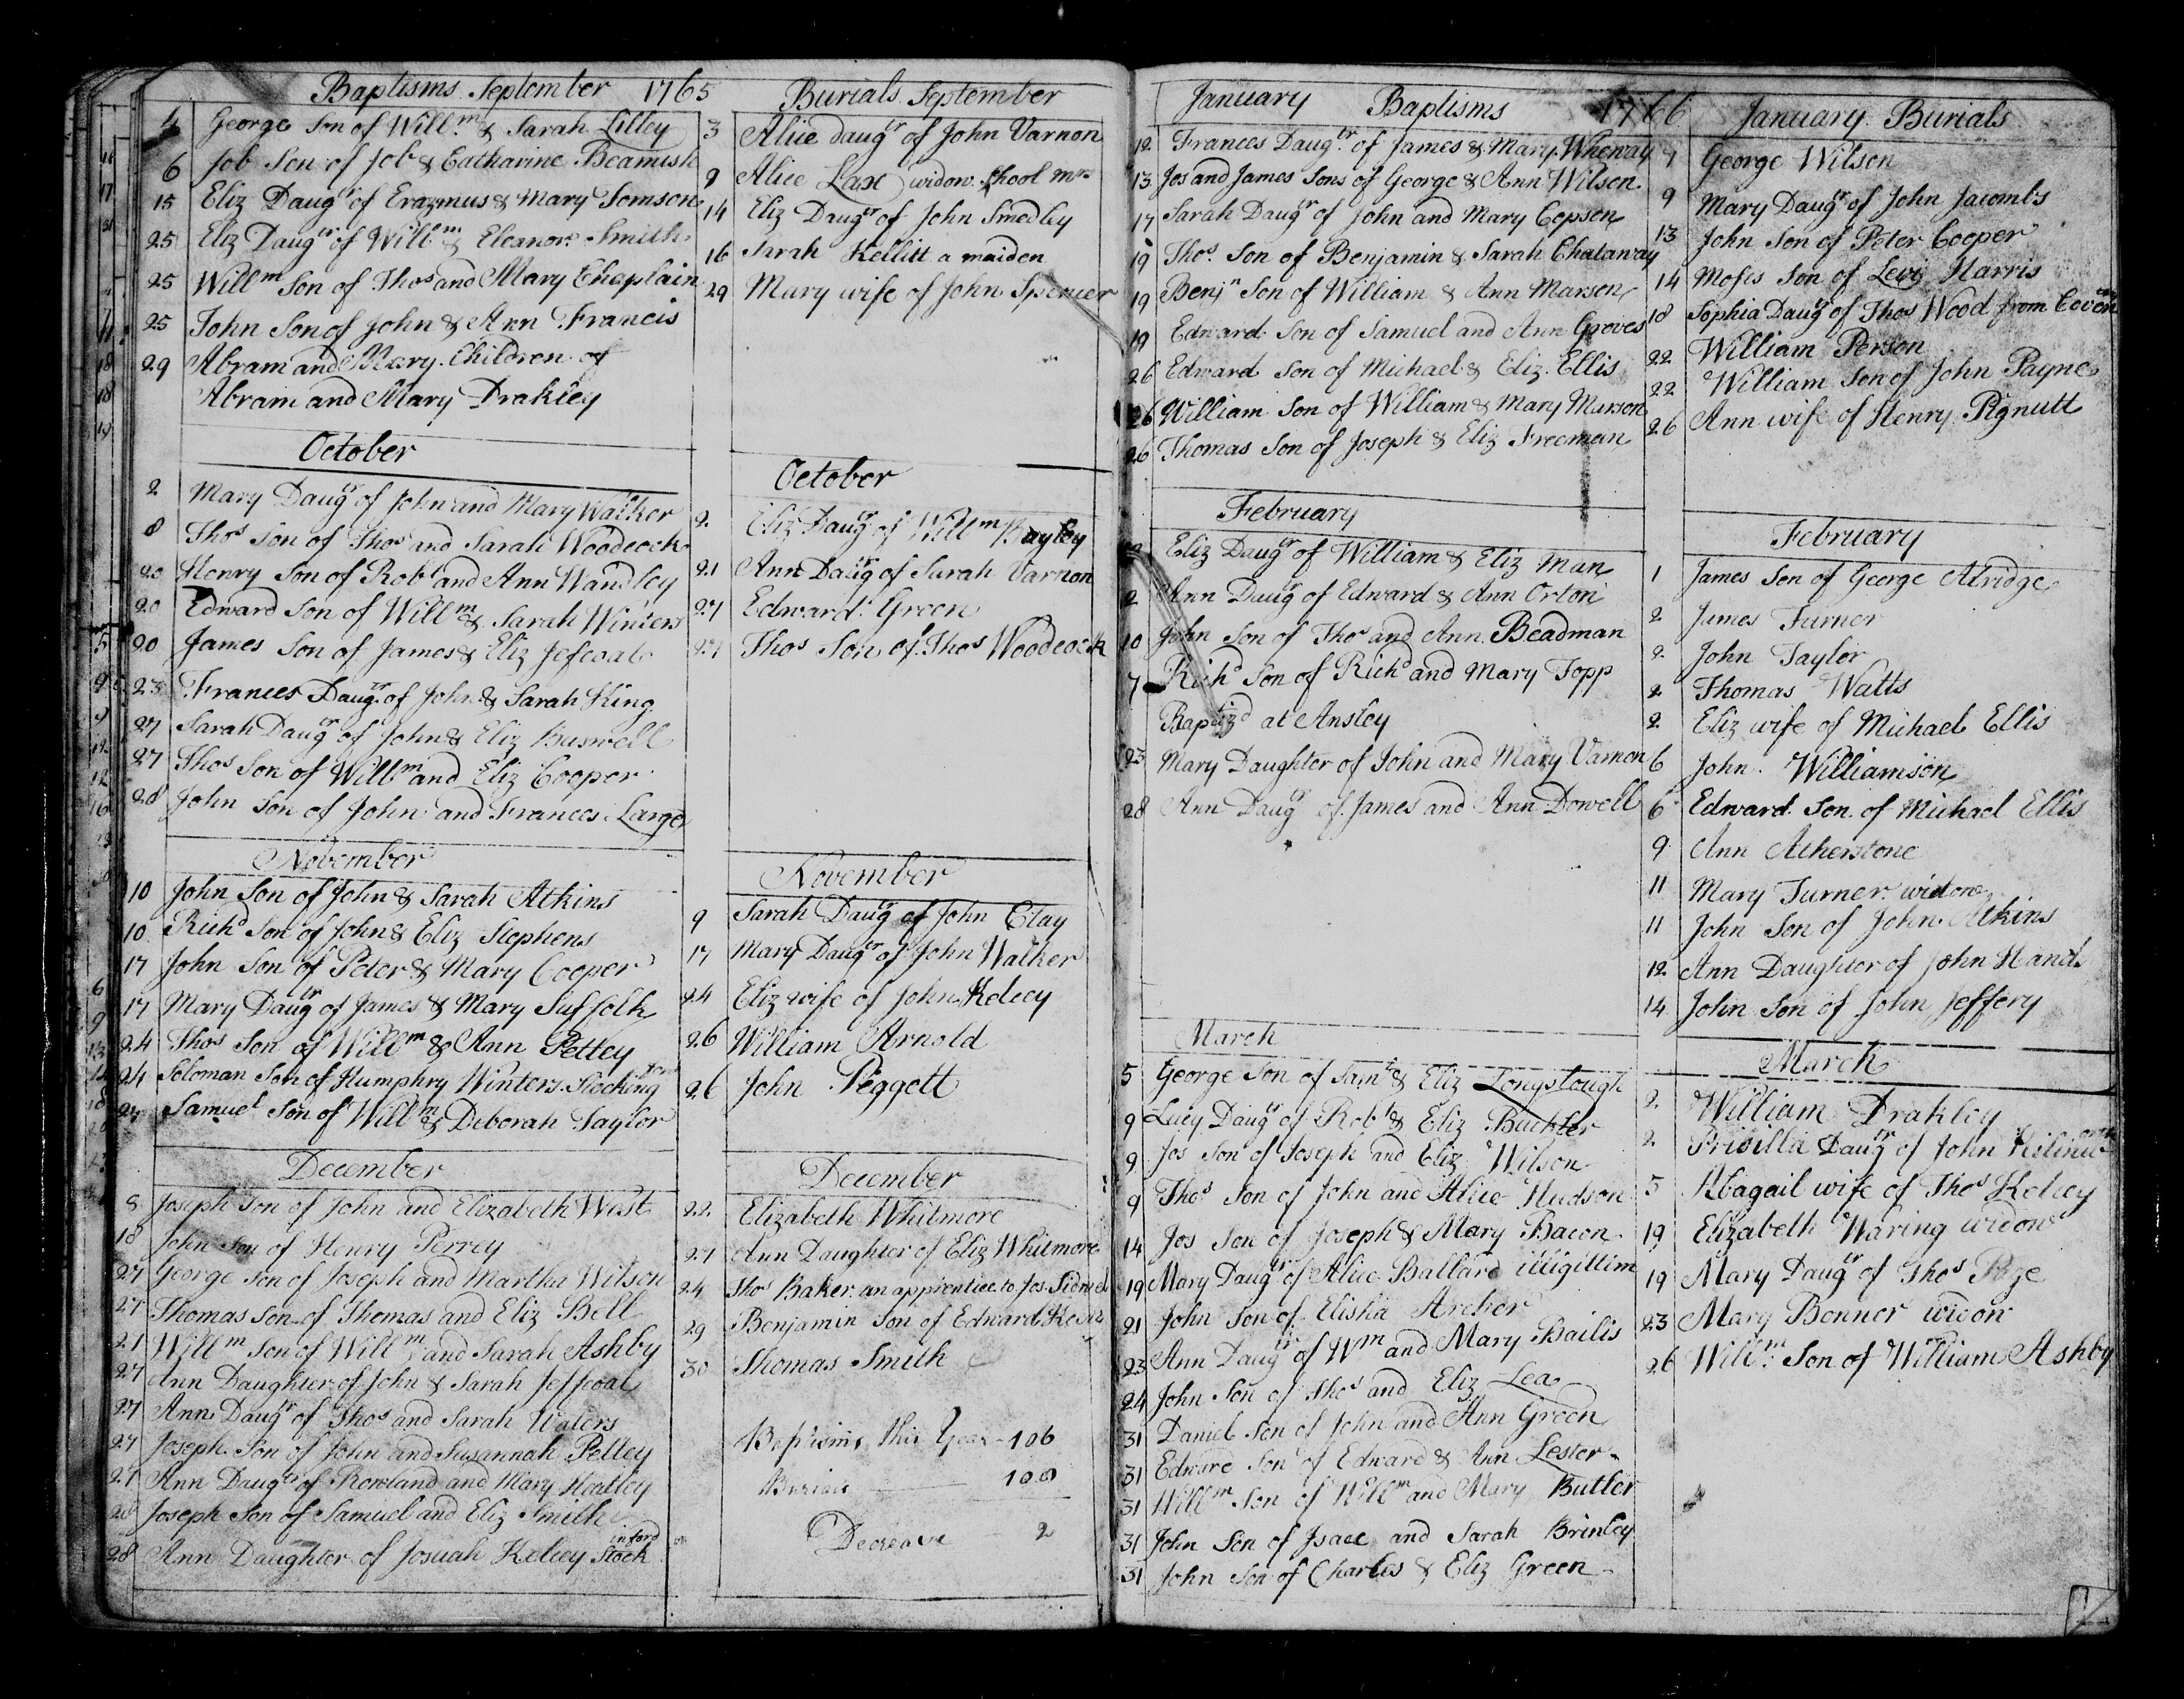 Baptisms. September 1765
4 George Son of Will.m & Sarah Lilley
6 Job Son of Job & Catharine Beamish
15 Eliz Daugtr of Erazmus & Mary Tomson
25 Eliz Daugtr of Will.m & Eleanor Smith
25 Willm Son of Thos and Mary Chaplain
25 John Son of John & Ann Francis
29 Abram and Mary Children of
Abram and Mary Drakley
October
2 Mary Daugtr of John and Mary Walker
8 Thos Son of Thos and Sarah Woodcock
20 Henry Son of Robt and Ann Wandley
20 Edward Son of Willm & Sarah Winters
20 James Son of James & Eliz Jefcoat
23 Frances Daugtr of John & Sarah King
27 Sarah Daugtr of John & Eliz Buswell
27 Thos Son of Willm and Eliz Cooper
28 John Son of John and Frances Large
November
10 John Son of John & Sarah Atkins
10 Richd Son of John & Eliz Stephens
17 John Son of Peter & Mary Cooper
17 Mary Daugtr of James & Mary Suffolk
24 Thos Son of Willm & Ann Pettey
24 Soloman Son of Humphry Winters Stocking
24 Samuel Son of Willm & Deborah Taylor
December
8 Joseph Son of John and Elizabeth West
18 John Son of Henry Perrey
27 George Son of Joseph and Martha Wilson
27 Thomas Son of Thomas and Eliz Bell
21 Willm Son of Willm and Sarah Ashby
27 Ann Daughter of John & Sarah Jeffcoat
27 Ann Daugtr of Thos and Sarah Waters
27 Joseph Son of John and Susannah Pettey
27 Ann Daugtr of Rowland and Mary Hoatley
28 Joseph Son of Samuel and Eliz Smith
28 Ann Daughter of Josuah Kelsey Stockinford
Burials. September
3 Alice daugtr of John Varnon
9 Alice Lax widow School Mrs
14 Eliz Daugtr of John Smedley
16 Sarah Kellitt a maiden
29 Mary wife of John Spencer
October
2 Eliz Daugr of Willm Bayley
21 Ann Daugr of Sarah Varnon
27 Edward Green
27 Thos Son of Thos Woodcock
November
9 Sarah Daugr of John Clay
17 Mary Daugtr of John Walker
24 Eliz wife of John Kelsey
26 William Arnold
26 John Peggett
December
22 Elizabeth Whitmore
27 Ann Daughter of Eliz Whitmore
24 Thos Baker an apprentice to Jos
29 Benjamin Son of Edward
30 Thomas Smith
Baptisms this Year 106
Burials 108
Decrease 2
January Baptisms 1766
12 Frances Daugtr of James & Mary Wheway
13 Jos and James Sons of George & Ann Wilson
17 Sarah Daugr of John and Mary Copson
19 Thos. Son of Benjamin & Sarah Chataway
19 Benjn Son of William & Ann Marson
19 Edward Son of Samuel and Ann Groves
26 Edward Son of Michael & Eliz Ellis
26 William Son of William & Mary Marson
26 Thomas Son of Joseph & Eliz Freeman
February
Eliz Daugtr of William & Eliz Man
2 Ann Daugtr of Edward & Ann Orton
10 John Son of Thos and Ann Beadman
7 Richd Son of Richd and Mary Topp
Baptizd at Ansley
23 Mary Daughter of John and Mary Varnon
28 Ann Daugtr of James and Ann Dowell
March
5 George Son of Saml & Eliz Longslough
9 Lucy Daugtr of Robt & Eliz Buckler
9 Jos Son of Joseph and Eliz Wilson
9 Thos Son of John and Alice Hudson
14 Jos Son of Joseph & Mary Bacon
19 Mary Daugtr of Alice Ballard illigittim
21 John Son of Elisha Archer
23 Ann Daugtr of Wm and Mary Bailis
24 John Son of Thos and Eliz Lea
31 Daniel Son of John and Ann Green
31 Edward Son of Edward & Ann Lester
31 Willm Son of Willm and Mary Butler
31 John Son of Isaac and Sarah Brinley
31 John Son of Charles & Eliz Green
January Burials
7 George Wilson
9 Mary Daugr of John Jacombs
13 John Son of Peter Cooper
14 Moses Son of Levi Harris
18 Sophia Daugr of Thos Wood from Coven
22 William Person
22 William Son of John Payne
26 Ann wife of Henry Pignutt
February
1 James Son of George Alridge
2 James Turner
2 John Taylor
2 Thomas Watts
2 Eliz wife of Michael Ellis
6 John Williamson
6 Edward Son of Michael Ellis
9 Ann Atherstone
11 Mary Turner widow
11 John Son of John Atkins
12 Ann Daughter of John Hand
14 John Son of John Jeffery
March
2 William Drakley
2 Prisilla Daugtr of John
5 Abagail wife of Thos Kelsey
19 Elizabeth Waring widow
19 Mary Daugtr of Thos Pze
23 Mary Bonner widow
26 Willm Son of William Ashby